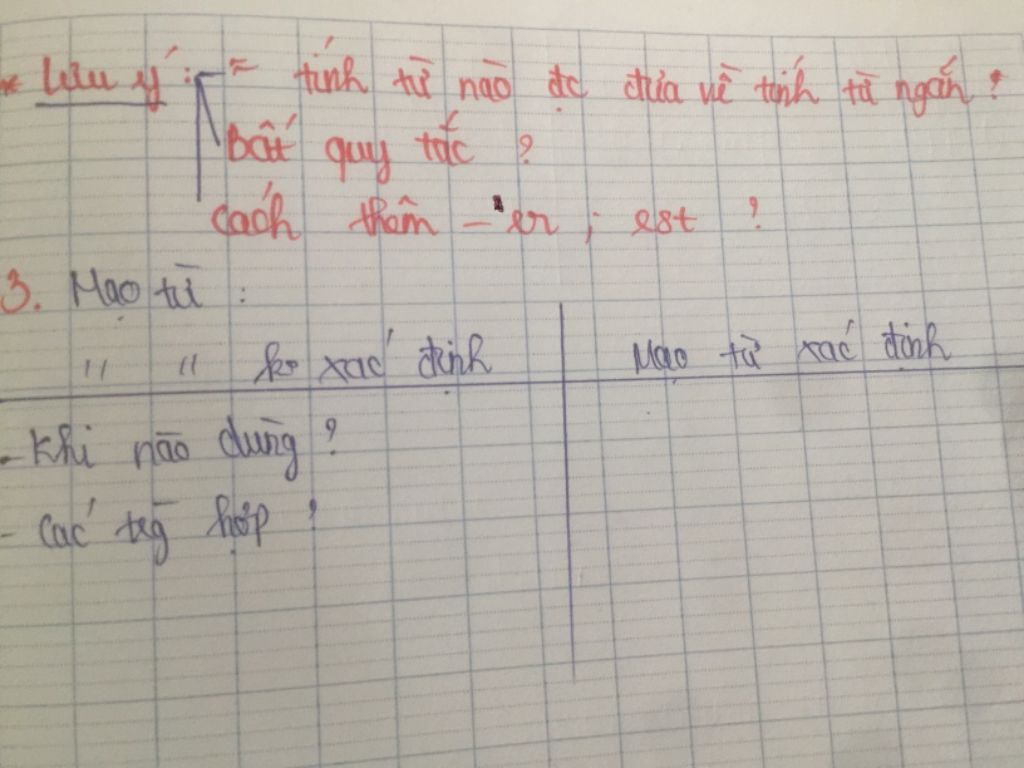 * Lưu ý : = tính từ nào đc đưa về tính từ ngắn ?
bất quy tắc ?
cách thêm - er ; est ?
3. Mạo từ :
" " ko xác định | Mạo từ xác định
- Khi nào dùng ?
- Các trg hợp ?